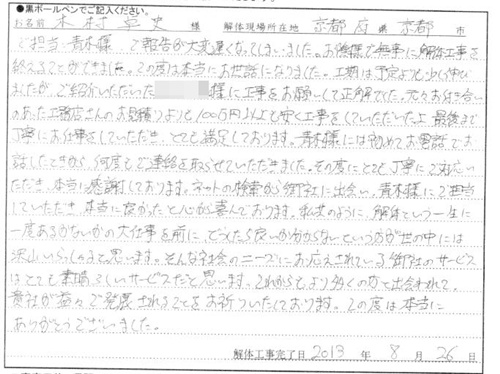 ●黒ボールペンでご記入ください。
お名前 木村卓史 様 解体現場所在地 京都 府 県 京都 市
ご担当 青木様、ご報告が大変遅くなってしまいました。お陰様で無事に解体工事を
終えることができました。この度は本当にお世話になりました。工期は予定より少し伸び
ましたが、ご紹介いただいた 様に工事をお願いして正解でした。元々お付き合い
のあった工務店さんのお見積りよりも100万円以上も安く工事をしていただいた上、最後まで
丁寧にお仕事をしていただき、とても満足しております。青木様には初めてお電話でお
話してときから、何度もご連絡を取らせていただきました。その度にとても丁寧にご対応い
ただき、本当に感謝しております。ネットの検索から御社に出会い、青木様にご担当
していただき、本当に良かったと心から喜んでおります。私共のように、解体という一生に
一度あるかないかの大仕事を前に、どうしたら良いか分からないという方が世の中には
沢山いらっしゃると思います。そんな社会のニーズにお応えされている御社のサービス
はとても素晴らしいサービスだと思います。これからも、より多くの方と出会われて、
貴社が益々ご発展されることをお祈りいたしております。この度は本当に
ありがとうございました。
解体工事完了日 2013 年 8 月 26 日